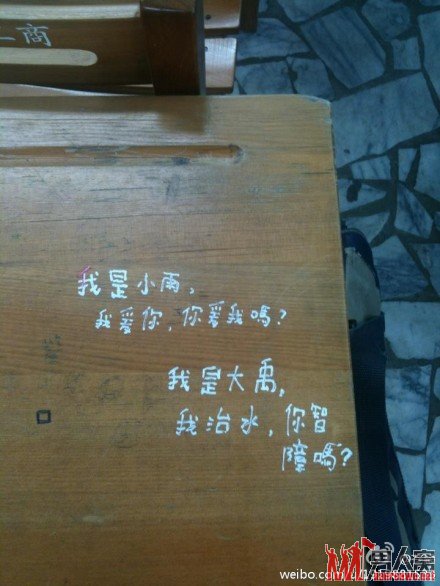 商
我是小雨,
我爱你,你爱我嗎?
我是大禹,
我治水,你智
障嗎?
男人窝